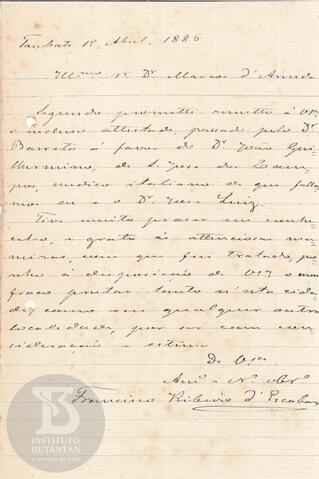 Taubaté 12, Abril, 1886
Illmo Sr Dr Marcos d'Arruda
Segundo prometti remetto á VSa
o incluso attestado, passado pelo Dr
Barreto á favor do Dr João Gui
lhermino, de S. Jose dos Cam
pos, medico italiano de que falla
mos eu e o Dr Jose Luiz.
Tive muito praser em conhe
cel-o, e grato ás attenciosas ma
neiras, com que fui tratado, po
nho á disposição de VSa o meu
fraco prestar tanto n'esta cida
de, como em qualquer outra
localidade, por ser com con
sideração e estima
De VSa
Amo e Co Obro
Francisco Ribeiro d'Escobar
INSTITUTO
BUTANTAN
A serviço da vida